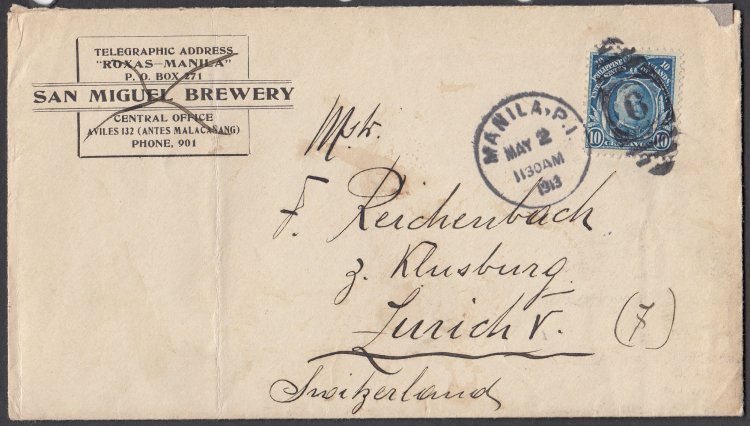 TELEGRAPHIC ADDRESS
"ROXAS-MANILA"
P. O. BOX 271
SAN MIGUEL BREWERY
CENTRAL OFFICE
AVILES 132 (ANTES MALACAÑANG)
PHONE, 901
MANILA, P.I.
MAY 2
1130AM
1913
10 10
PHILIPPINE ISLANDS
6
10 CENTAVOS 10
F. Reichenbach
z. Klusburg.
Zurich V.
(7)
Switzerland